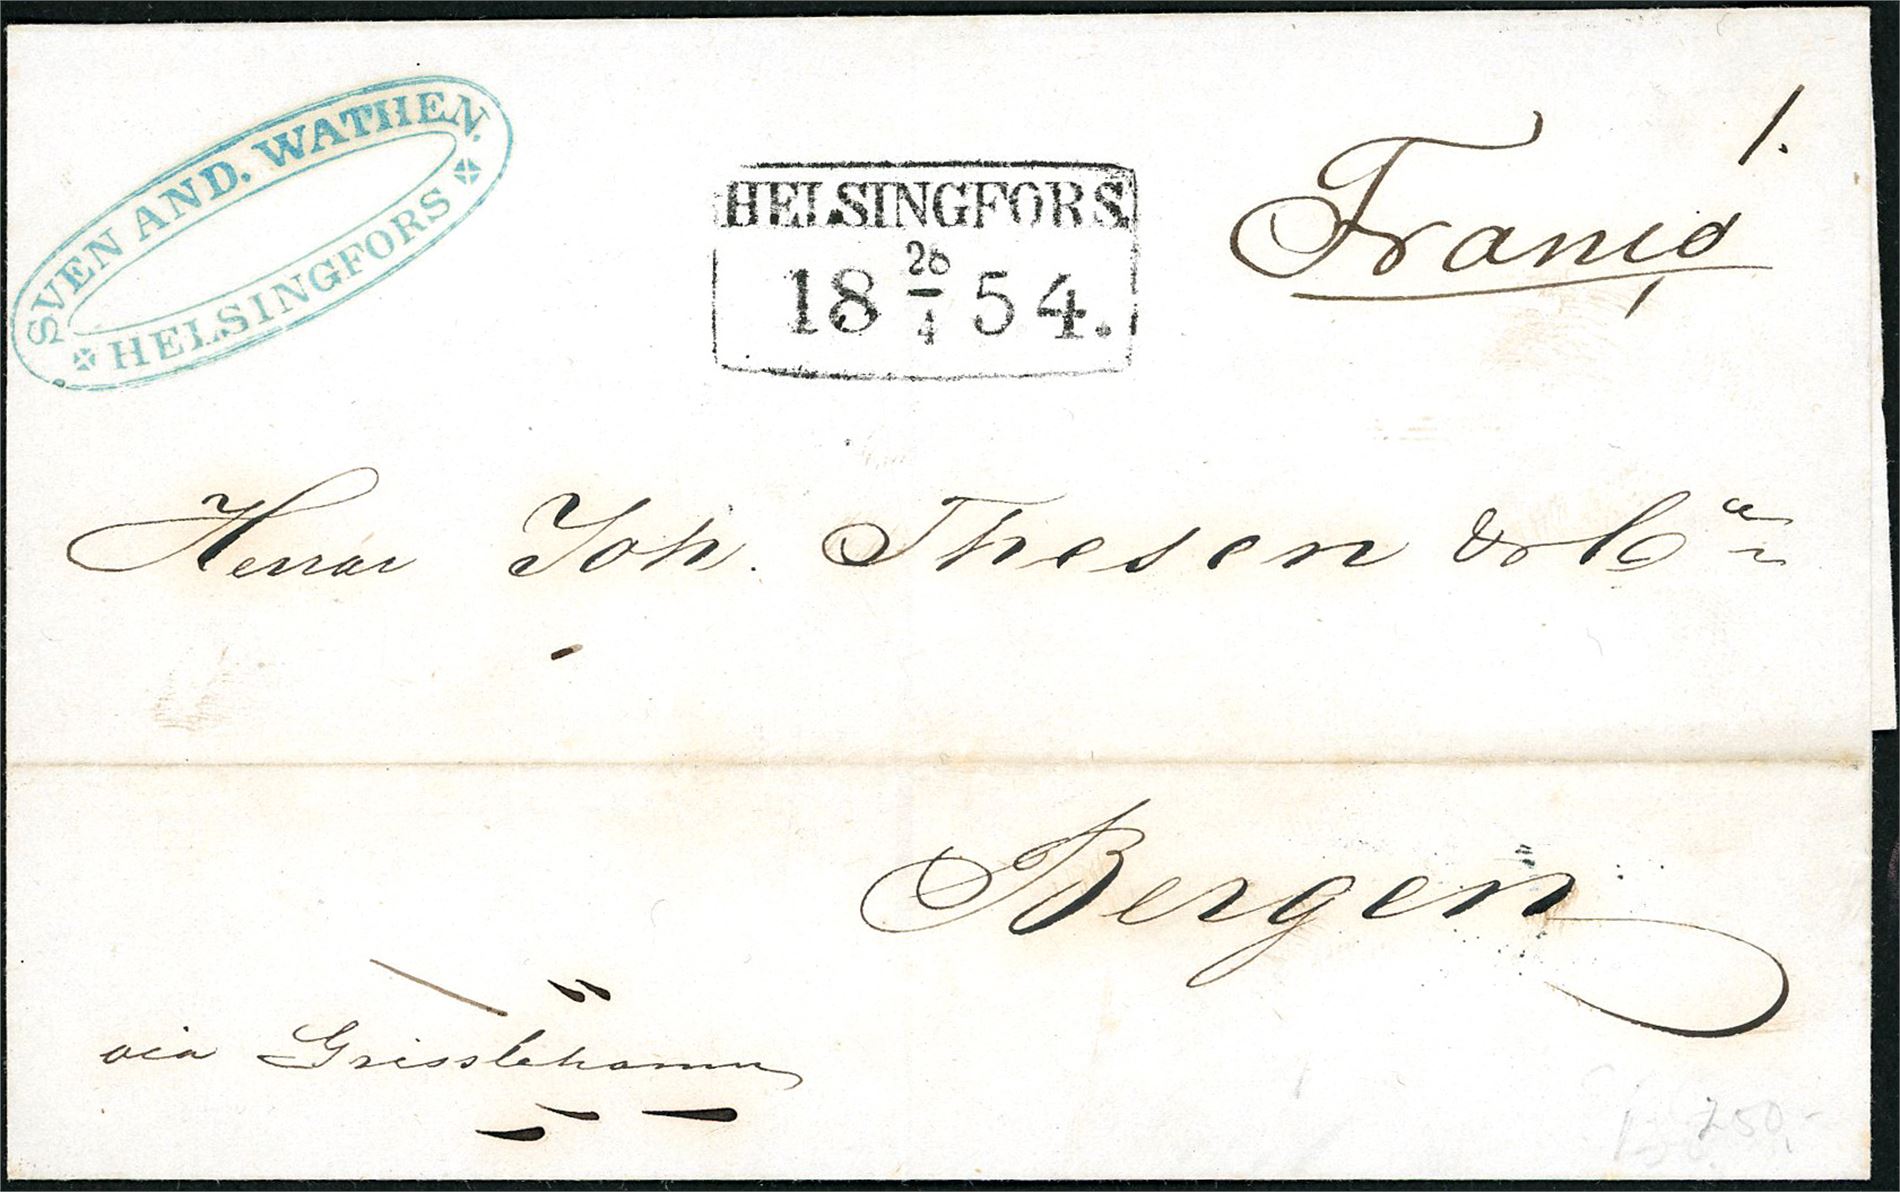 SVEN AND. WATHEN.
HELSINGFORS
HELSINGFORS.
18 26/4 54.
1.
Franco
Herrar Joh. Thesen & Co
Bergen
via Grisslehamn
250,-